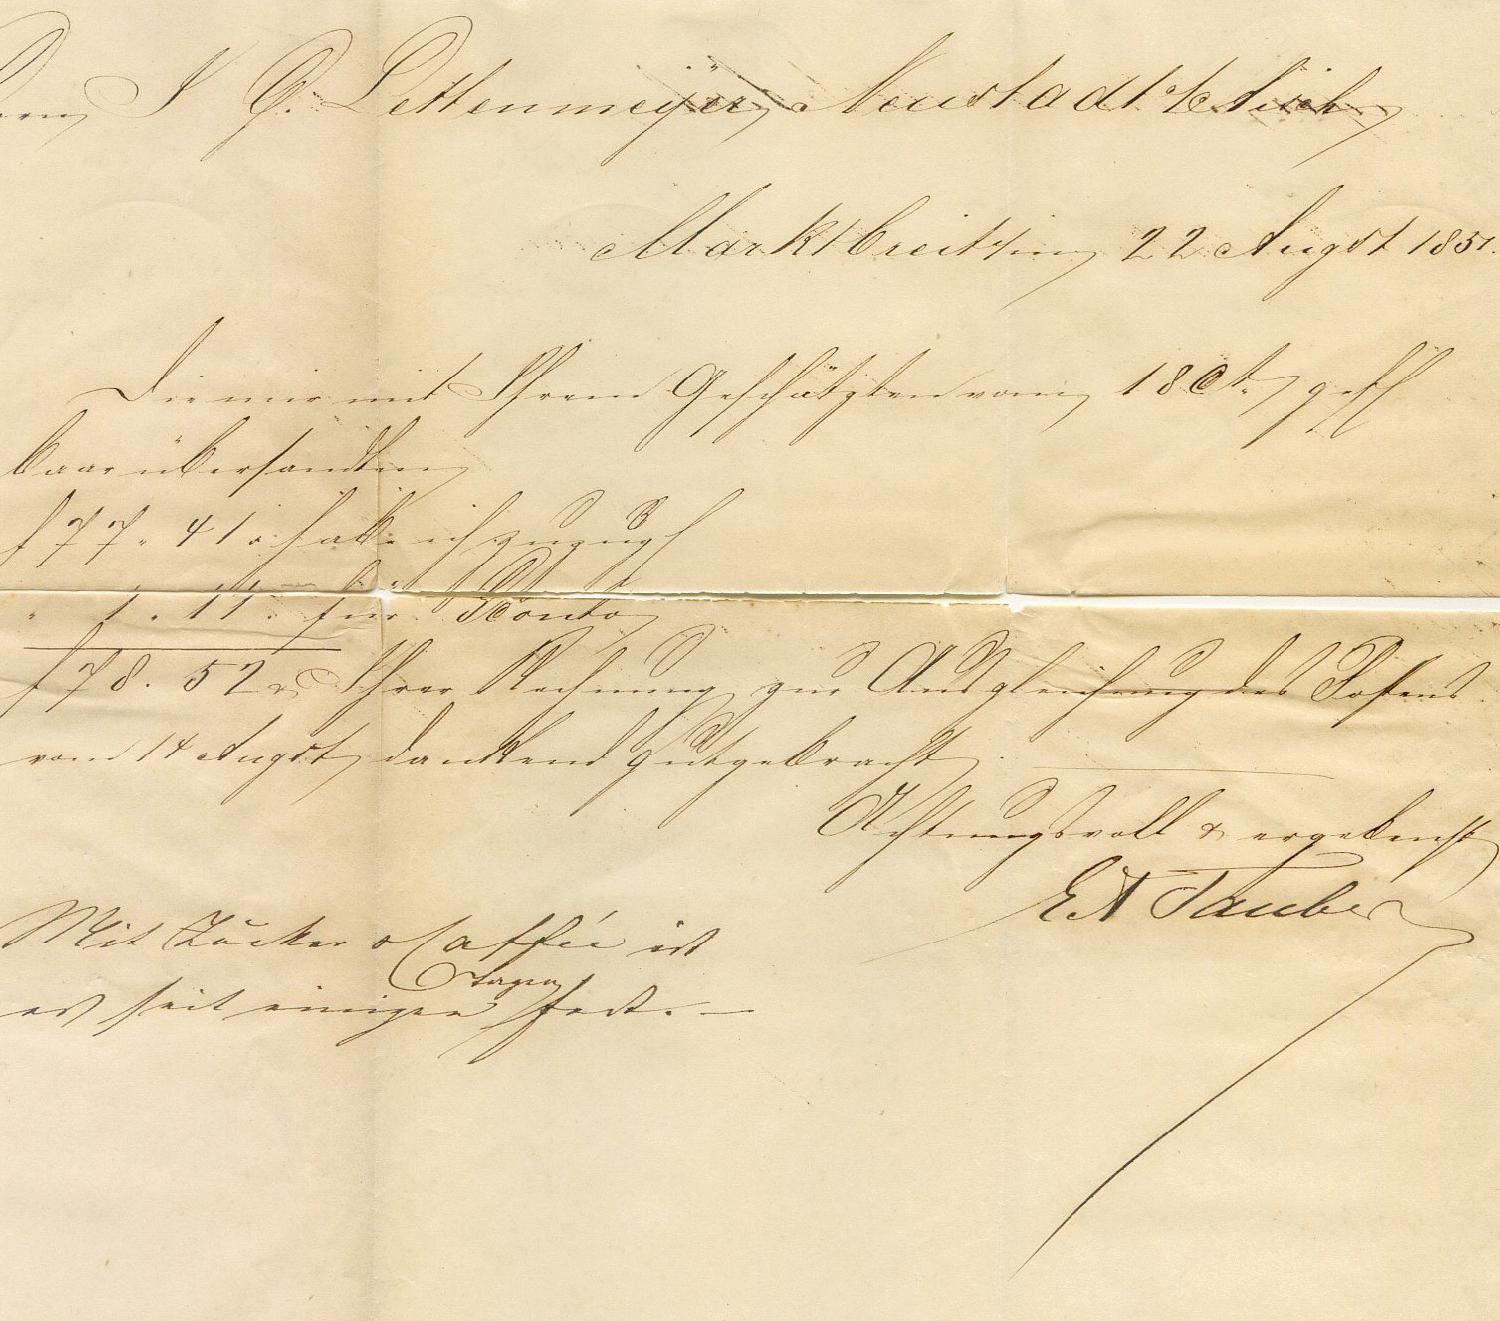 Herrn J. G. Dettenmeÿer, Neustadt a/Aisch
Marktbreit den 22 August 1851.
Die mir mit Ihrem Geschätzten vom 18 Ct. gefl
baar übersandten
f 77. 41. habe ich zuzügl
" 1. 11. für Sconto
f 78. 52 Ihrer Rechnung zur Ausgleichung des Postens
vom 14 August dankend gutgebracht.
Achtungsvoll & ergebenst
E A Tauber
Mit Zucker & Caffée ist
es seit einigen Tagen fest. —